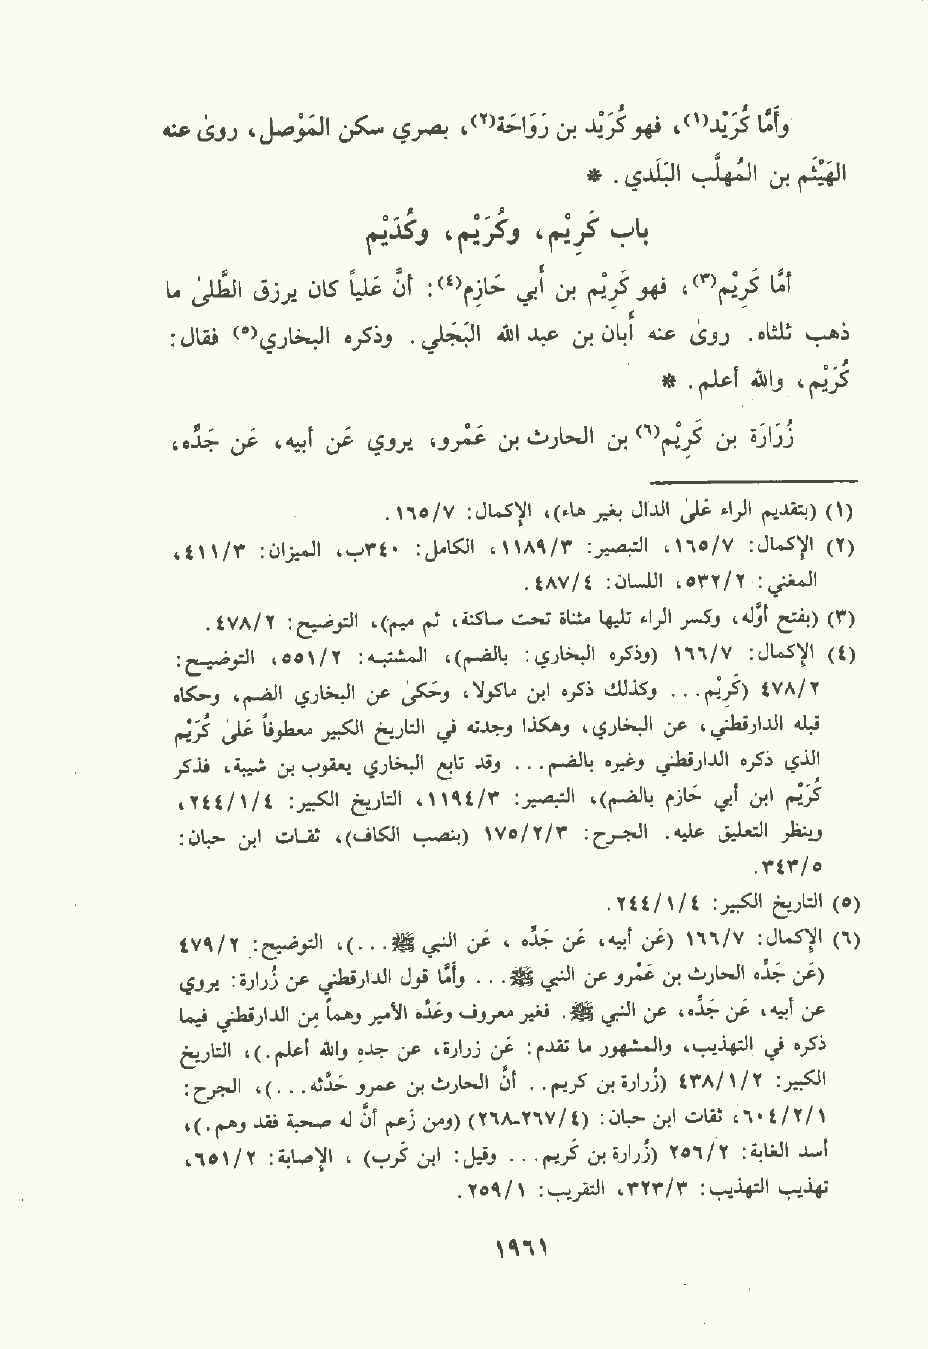 وأمَّا كُرَيْد(١)، فهو كُرَيْد بن رَوَاحَة(٢)، بصري سكن المَوْصل، روىٰ عنه
الهَيْثَم بن المُهلَّب البَلَدي. *
باب كَرِيْم، وكُرَيْم، وكُدَيْم
أمَّا كَرِيْم(٣)، فهو كَرِيْم بن أبي حَازِم(٤): أنَّ عَلياً كان يرزق الطَّلىٰ ما
ذهب ثلثاه. روىٰ عنه أبان بن عبد الله البَجَلي. وذكره البخاري(٥) فقال:
كُرَيْم، والله أعلم. *
زُرَارَة بن كَرِيْم(٦) بن الحارث بن عَمْرو، يروي عَن أبيه، عَن جَدِّه،
(١) (بتقديم الراء عَلىٰ الدال بغير هاء)، الإكمال: ١٦٥/٧.
(٢) الإكمال: ١٦٥/٧، التبصير: ١١٨٩/٣، الكامل: ٣٤٠ب، الميزان: ٤١١/٣،
المغني: ٥٣٢/٢، اللسان: ٤٨٧/٤.
(٣) (بفتح أوَّله، وكسر الراء تليها مثناة تحت ساكنة، ثم ميم)، التوضيح: ٤٧٨/٢.
(٤) الإكمال: ١٦٦/٧ (وذكره البخاري: بالضم)، المشتبه: ٥٥١/٢، التوضيح:
٤٧٨/٢ (كَرِيْم... وكذلك ذكره ابن ماكولا، وحَكىٰ عن البخاري الضم، وحكاه
قبله الدارقطني، عن البخاري، وهكذا وجدته في التاريخ الكبير معطوفاً عَلىٰ كُرَيْم
الذي ذكره الدارقطني وغيره بالضم... وقد تابع البخاري يعقوب بن شيبة، فذكر
كُرَيْم ابن أبي حَازم بالضم)، التبصير: ١١٩٤/٣، التاريخ الكبير: ٢٤٤/١/٤،
وينظر التعليق عليه. الجرح: ١٧٥/٢/٣ (بنصب الكاف)، ثقات ابن حبان:
٣٤٣/٥.
(٥) التاريخ الكبير: ٢٤٤/١/٤.
(٦) الإكمال: ١٦٦/٧ (عَن أبيه، عَن جَدِّه ، عَن النبي ﷺ...)، التوضيح: ٤٧٩/٢
(عَن جَدِّه الحارث بن عَمْرو عن النبي ﷺ... وأمَّا قول الدارقطني عن زُرارة: يروي
عن أبيه، عَن جَدِّه، عن النبي ﷺ. فغير معروف وعدَّه الأمير وهماً مِن الدارقطني فيما
ذكره في التهذيب، والمشهور ما تقدم: عَن زرارة، عن جدِهِ والله أعلم.)، التاريخ
الكبير: ٤٣٨/١/٢ (زُرارة بن كريم.. أنَّ الحارث بن عمرو حَدَّثه...)، الجرح:
٦٠٤/٢/١، ثقات ابن حبان: (٢٦٧/٤-٢٦٨) (ومن زعم أنَّ له صحبة فقد وهم.)،
أسد الغابة: ٢٥٦/٢ (زُرارة بن كَريم... وقيل: ابن كَرب) ، الإصابة: ٦٥١/٢،
تهذيب التهذيب: ٣٢٣/٣، التقريب: ٢٥٩/١.
١٩٦١